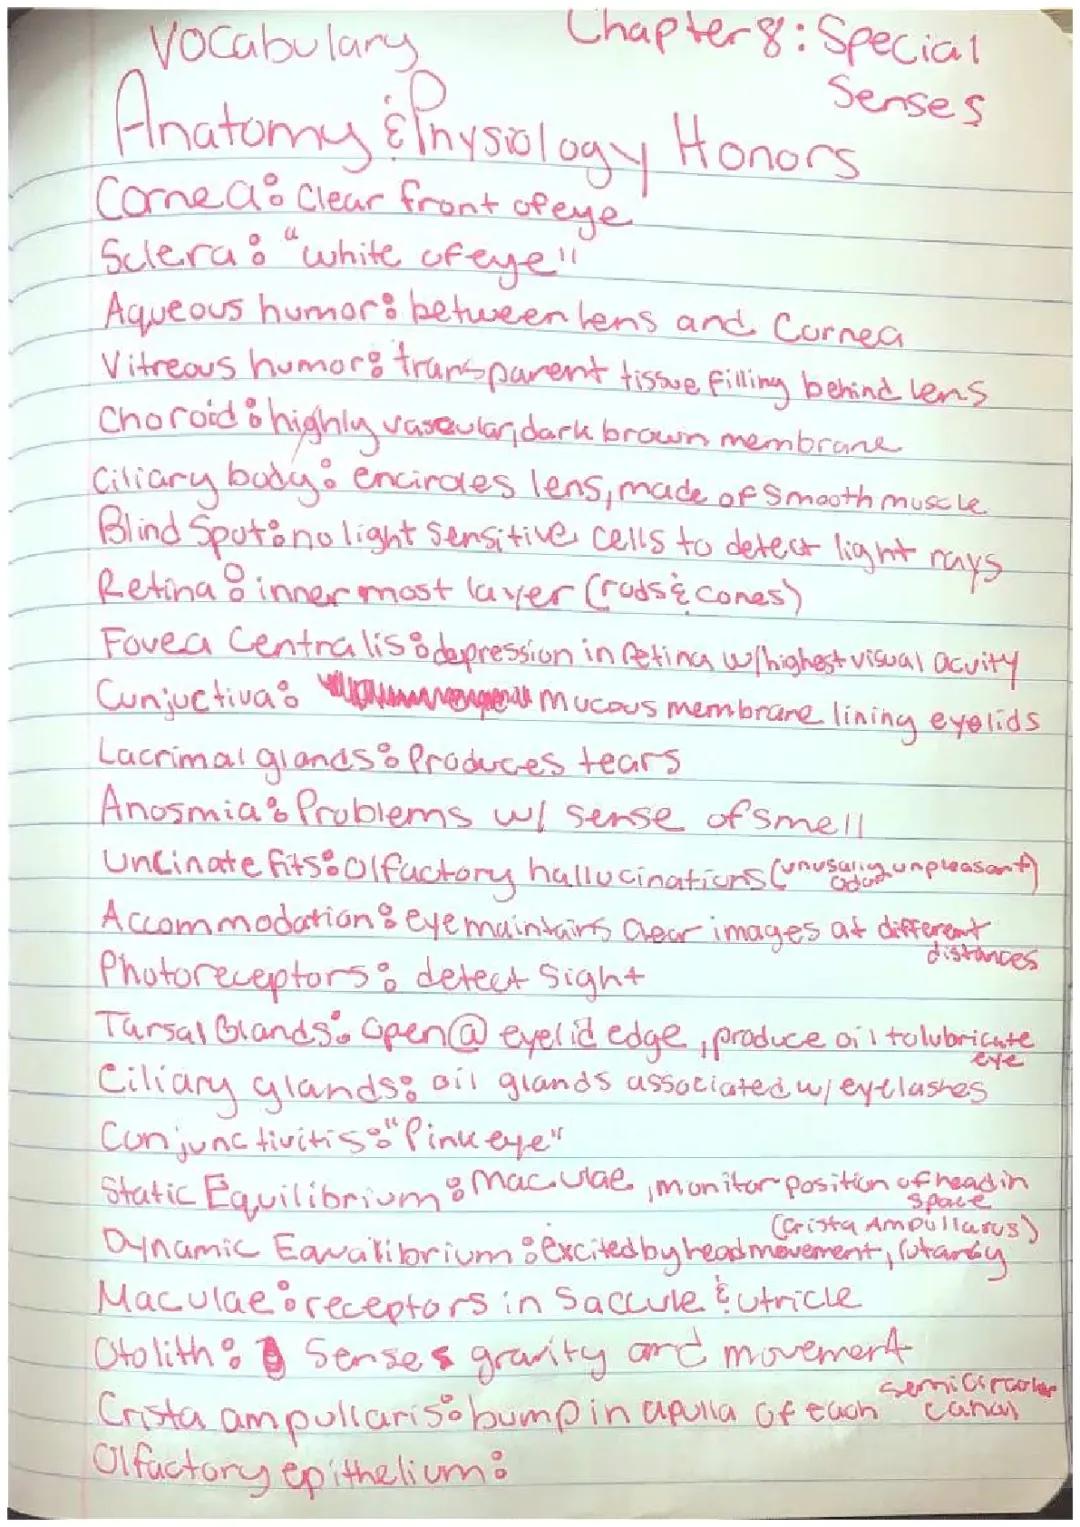 Vocabulary
Chapter 8: Special
Senses
Anatomy & Physiology Honors
Cornea: Clear front of eye
Sclera: "white of eye"
Aqueous humor: between lens and Cornea
Vitreous humor: transparent tissue filling behind lens
Choroid: highly vascular, dark brown membrane
Ciliary body: encircles lens, made of smooth muscle
Blind Spot: no light sensitive cells to detect light rays
Retina: inner most layer (rods & cones)
Fovea Centralis: depression in retina w/ highest visual acuity
Conjuctiva: mucous membrane lining eyelids
Lacrimal glands: Produces tears
Anosmia: Problems w/ sense of smell
Uncinate fits: Olfactory hallucinations (unusually unpleasant)
odor
Accommodation: eye maintains clear images at different
distances
Photoreceptors: detect Sight
Tarsal Glands: Open @ eyelid edge, produce oil to lubricate
eye
Ciliary glands: oil glands associated w/ eyelashes
Conjunctivitis: "Pink eye"
Static Equilibrium: Maculae, monitor position of head in
space
(Crista Ampullarus)
Dynamic Equailibrium: excited by head movement,
Maculae: receptors in Saccule & utricle
Otolith: Senses gravity and movement
semi circular
Crista ampullaris: bump in apulla of each canal
Olfactory epithelium: